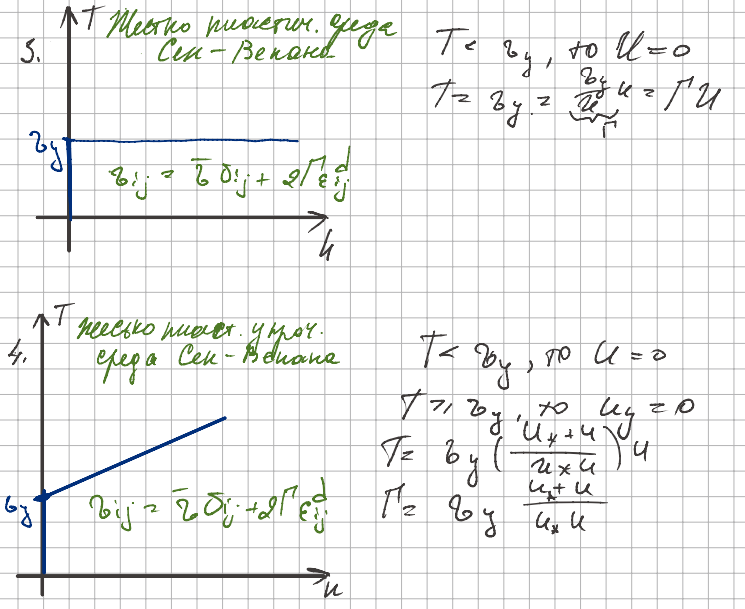 3.
T
Жестко пластич. среда
Сен-Венана
τy
τij = τ̄ δij + 2Γ εij^d
u
T < τy, то u = 0
T = τy = τy/u u = Γ u
Γ
4.
T
жестко пласт. упроч.
среда Сен-Венана
τy
τij = τ̄ δij + 2Γ εij^d
u
T < τy, то u = 0
T ≥ τy, то uy = 0
T = τy ( (u* + u)/(u* u) ) u
Γ = τy (u* + u)/(u* u)